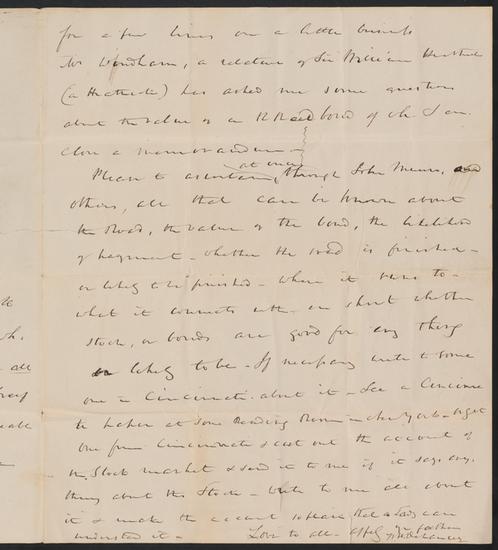 for a few lines on a little business
Mr Windham, a relation of Sir William
(a Heathcote) has asked me some questions
about the value of a R Road bond of wh. I en-
close a memorandum -
at once
Please to ascertain, through John Munn, and
others, all that can be known about
the Road, the value of the bond, the likelihood
of payment - whether the road is finished -
or likely to be finished - where it runs to -
what it connects with - in short whether
stock, or bonds are good for any thing
or likely to be - If necessary write to some
one in Cincinnati about it - See a Cincinna
ti paper at some Reading Room in New York - or get
one from Cincinnati & cut out the account of
the Stock market & send it to me if it says any
thing about this Stock - Write to me all about
it & make the account so plain that a lady can
understand it - Love to all - Affly yr father
all